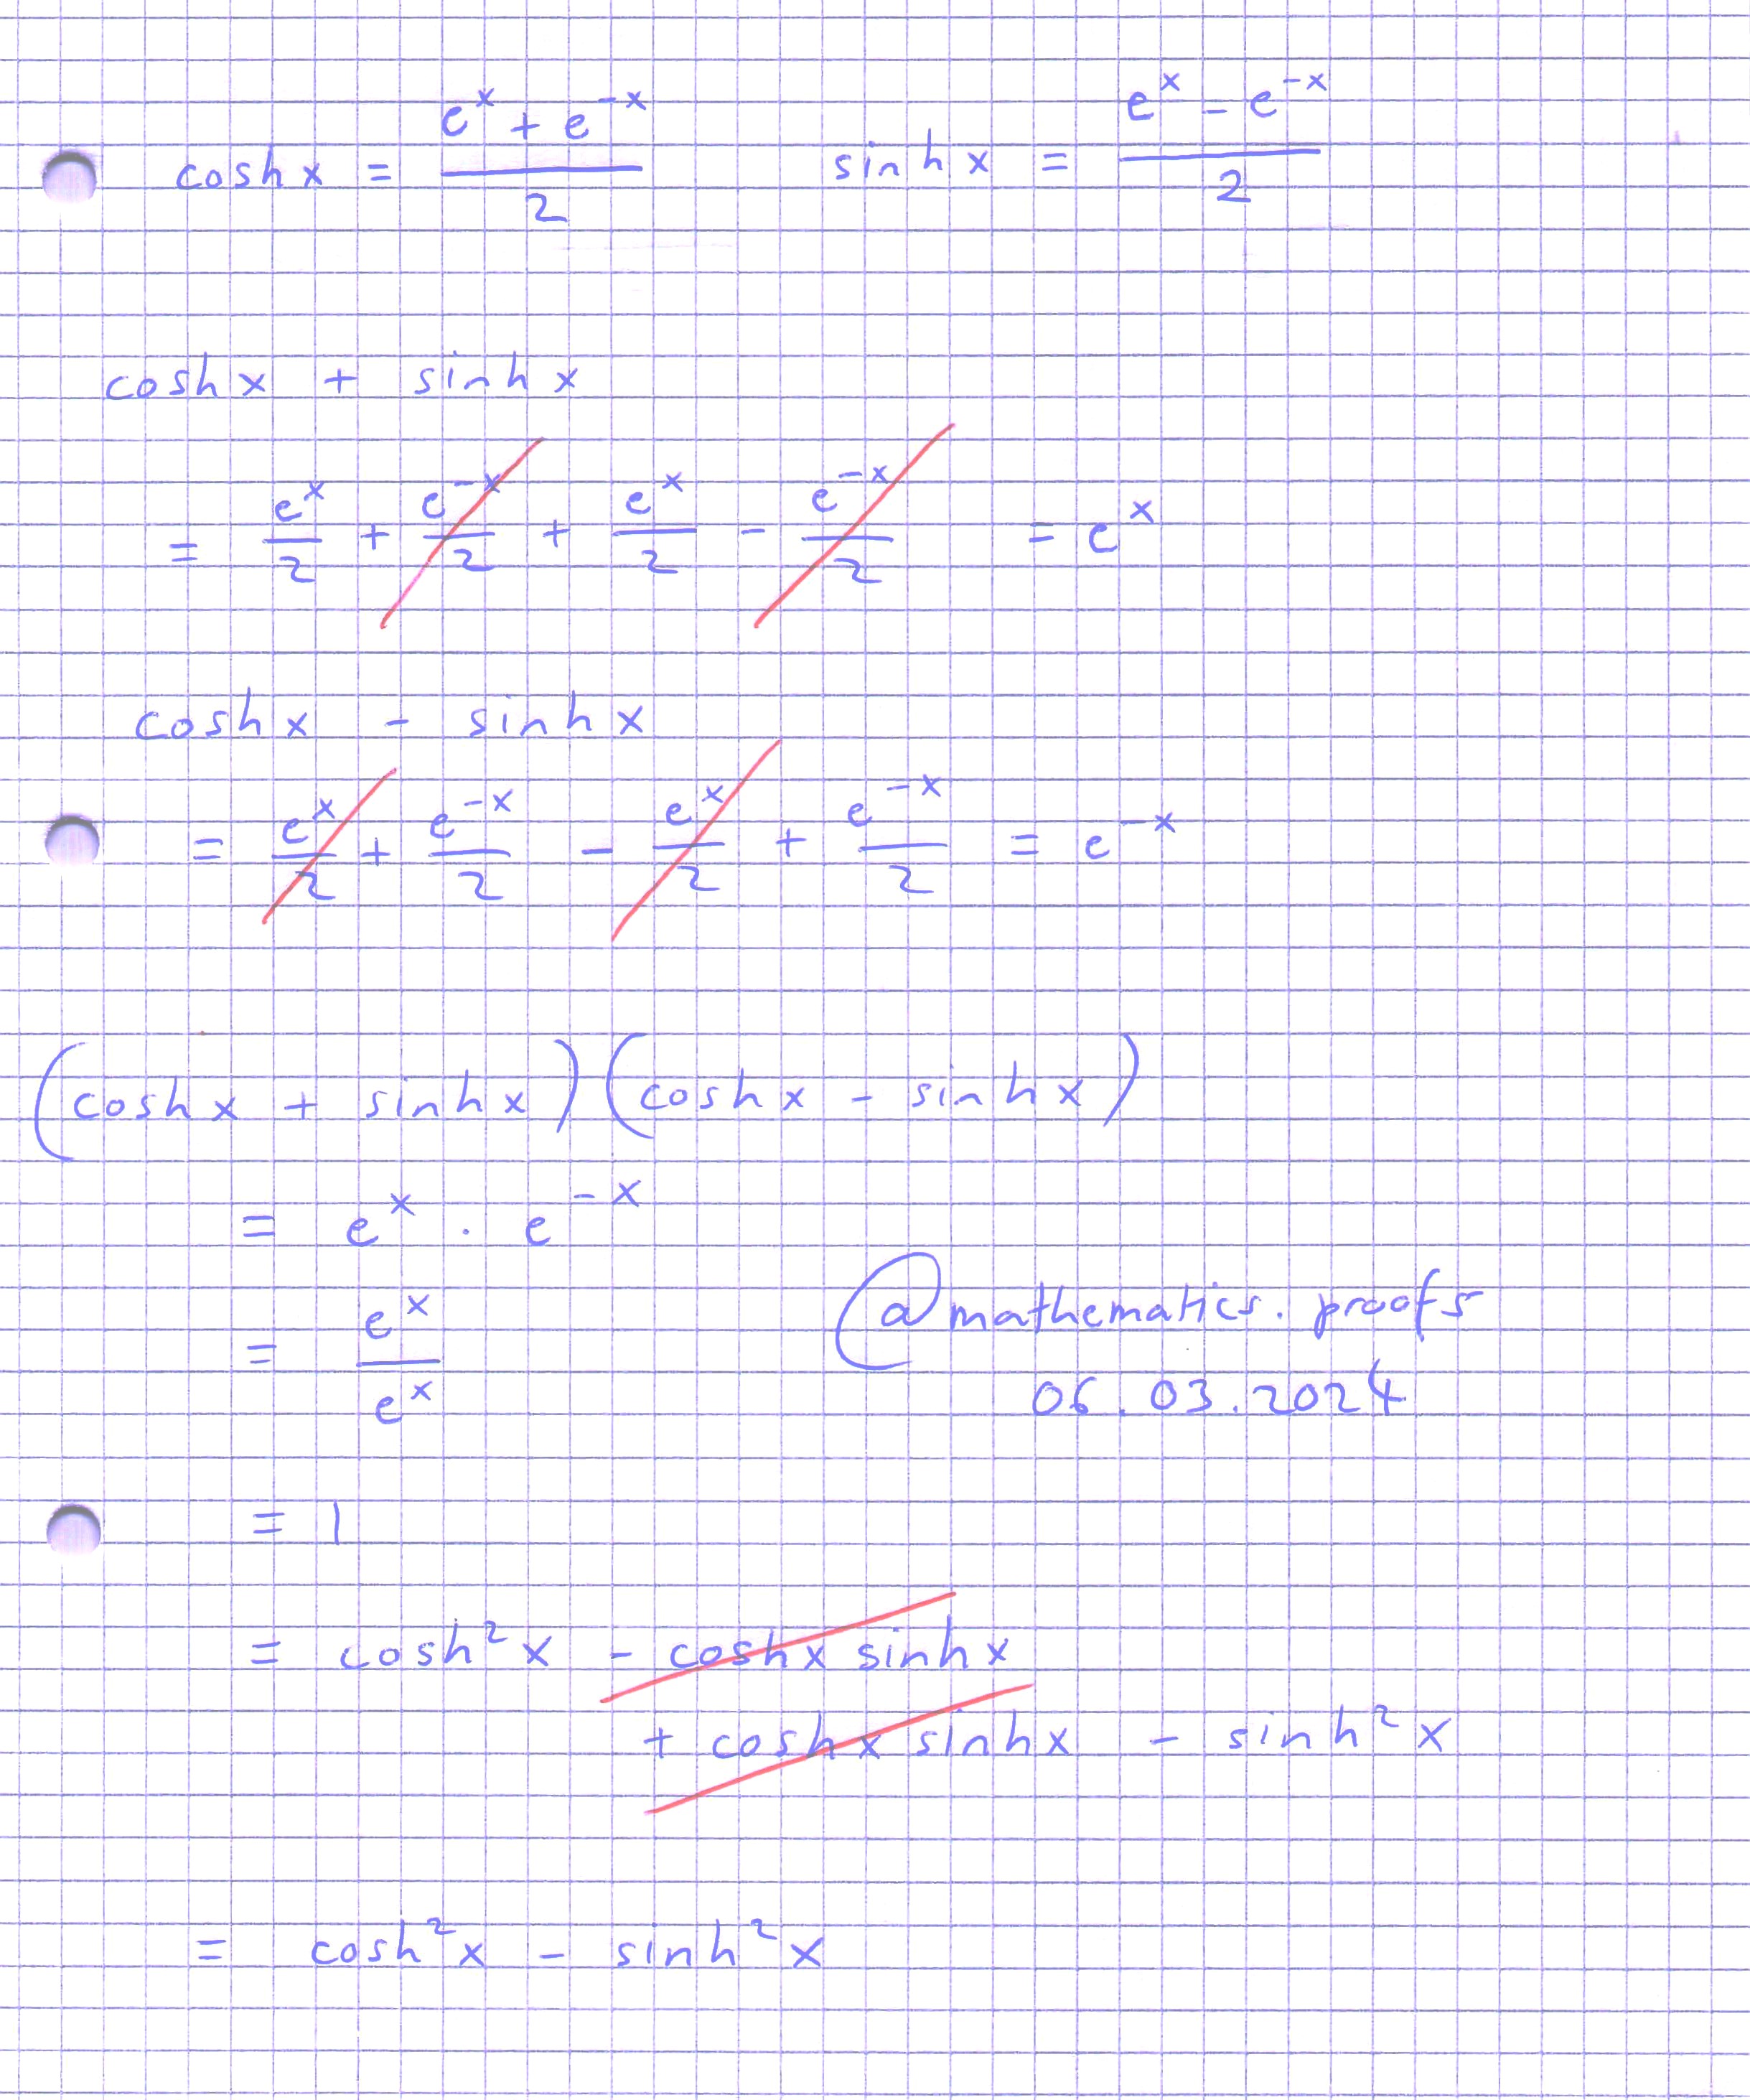 cosh x = (e^x + e^-x)/2 sinh x = (e^x - e^-x)/2
cosh x + sinh x
= e^x/2 + e^-x/2 + e^x/2 - e^-x/2 = e^x
cosh x - sinh x
= e^x/2 + e^-x/2 - e^x/2 + e^-x/2 = e^-x
(cosh x + sinh x)(cosh x - sinh x)
= e^x · e^-x
= e^x/e^x
@mathematics.proofs
06.03.2024
= 1
= cosh²x - cosh x sinh x
+ cosh x sinh x - sinh²x
= cosh²x - sinh²x